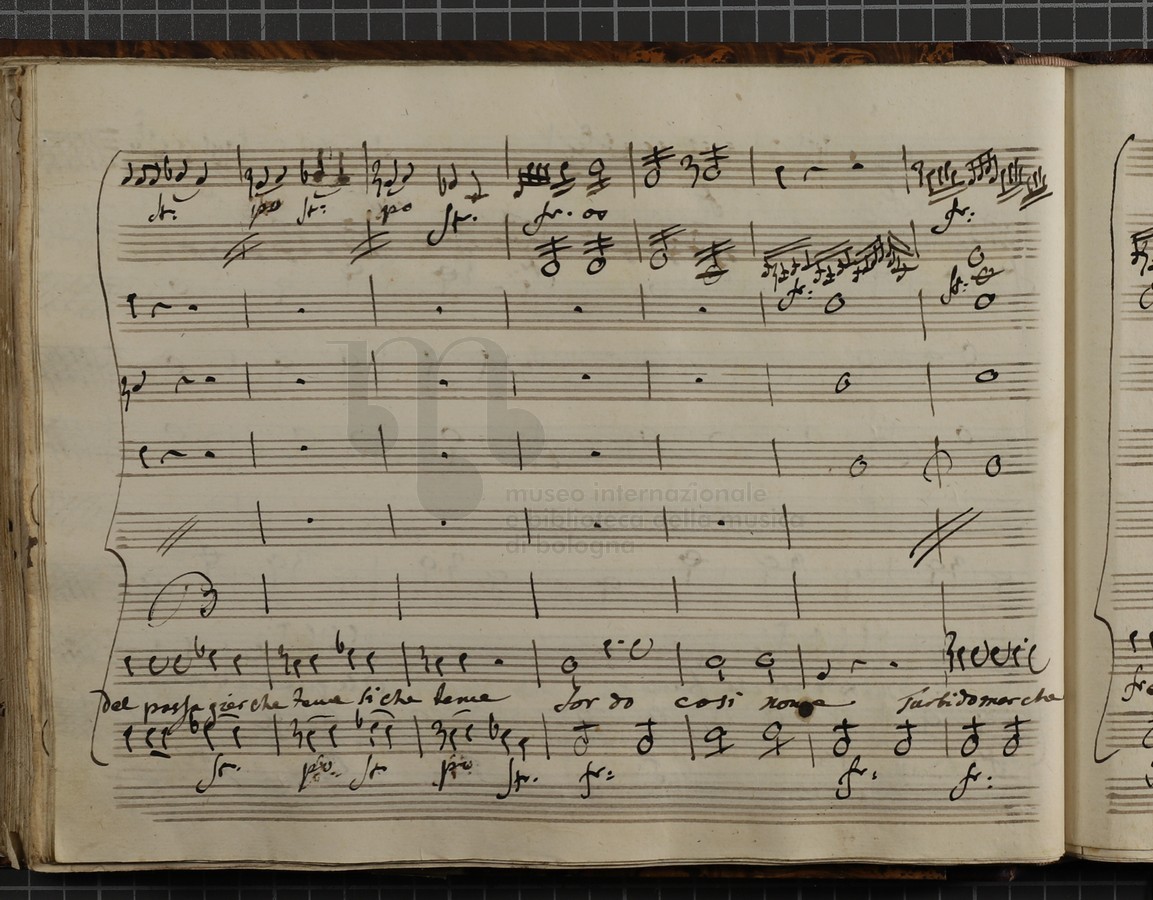 st: po st: po st. fr. fr:
fr: st:
museo internazionale
e biblioteca della musica
di bologna
Del passagier che teme si che teme sordo cosi non e Turbido mar che
st. po. st po st. fr: fr: fr: